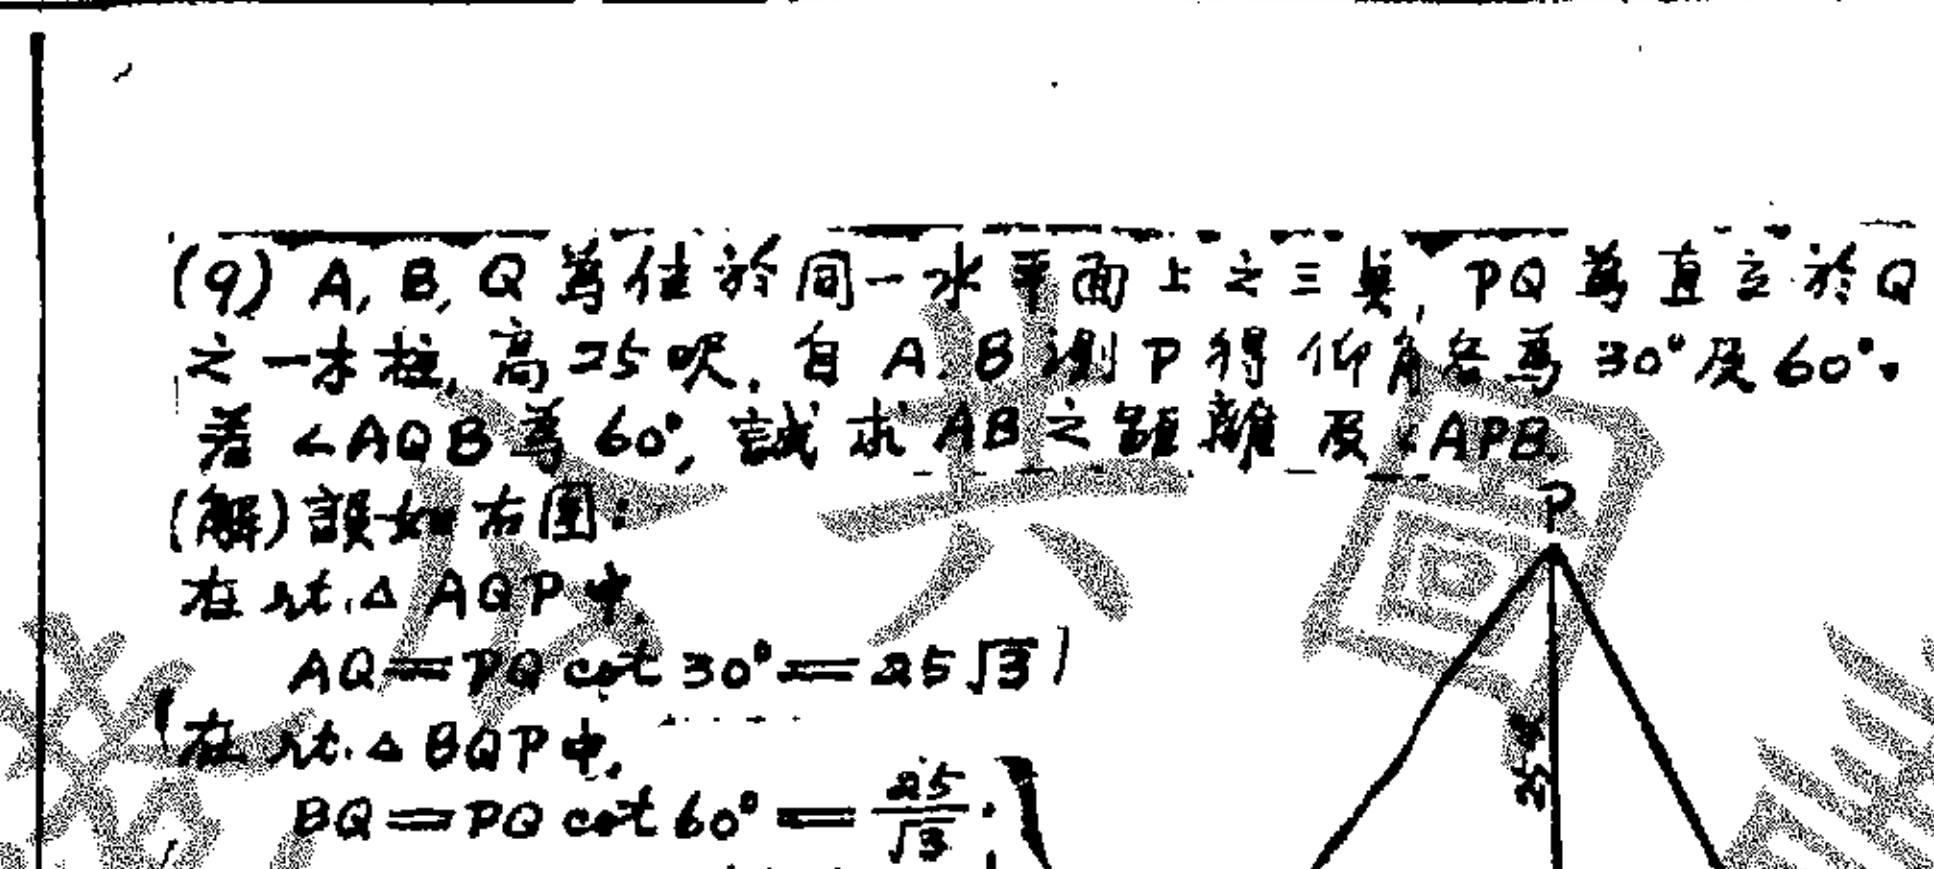 (9) A, B, Q 為位於同一水平面上之三點, PQ 為直立於Q
之一木柱, 高25呎. 自 A, B 測 P 得仰角各為 30° 及 60°.
若 ∠AQB 為 60°, 試求 AB 之距離及 ∠APB.
(解) 設如右圖:
P
在 rt. △ AQP 中,
AQ = PQ cot 30° = 25√3
在 rt. △ BQP 中,
25
BQ = PQ cot 60° = 25/√3